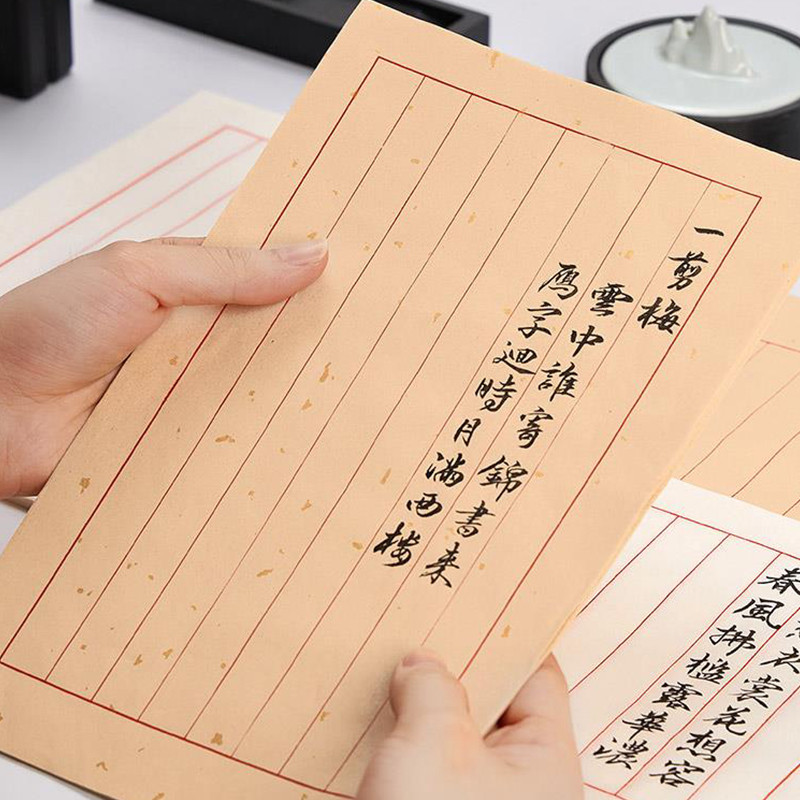 一剪梅
雲中誰寄錦書来
雁字迴時月满西楼
衣裳花想容
春風拂檻露華濃